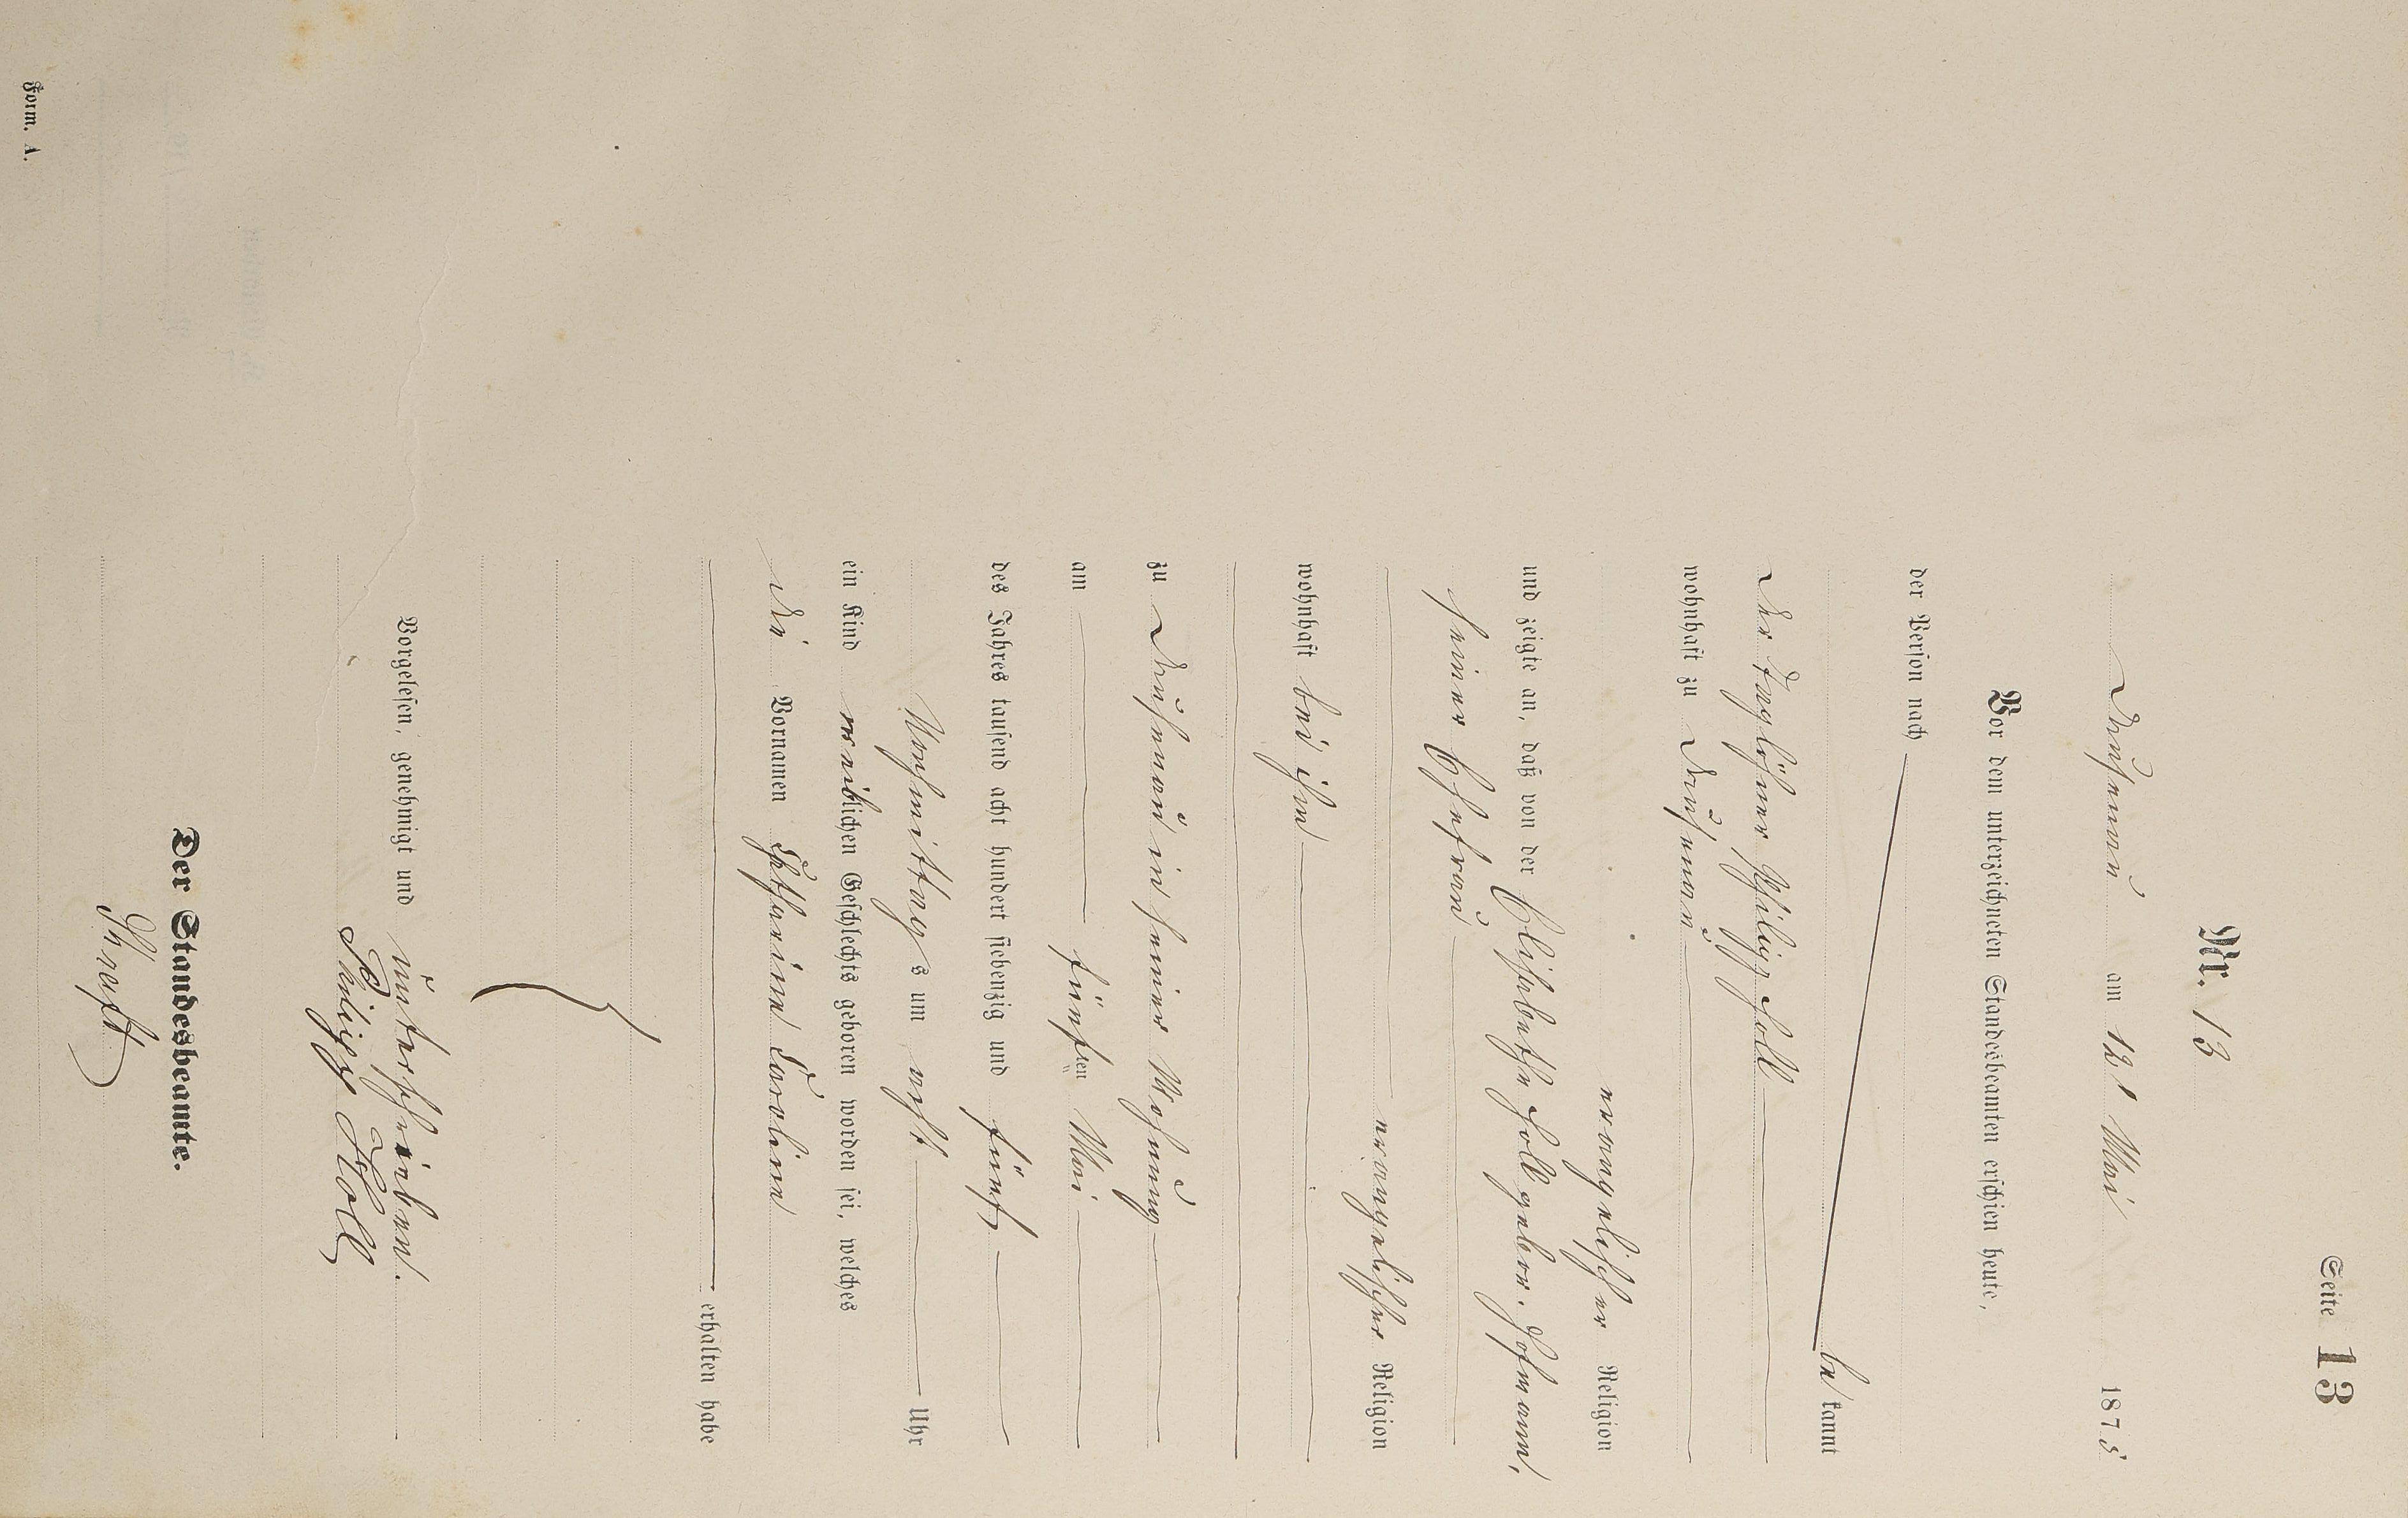 Seite 13
Nr. 13
Drusenau am 13t Mai 1875
Vor dem unterzeichneten Standesbeamten erschien heute,
der Person nach
bekannt
der Taglöhner Philipp Holl
evangelischer Religion
wohnhaft zu
und zeigte an, daß von der Elisabetha Holl gebor. Hofmann,
seiner Ehefrau
evangelischer Religion
wohnhaft bei ihm
zu in seiner Wohnung
am fünften Mai
des Jahres tausend acht hundert siebenzig und fünf
Vormittags um acht Uhr
ein Kind weiblichen Geschlechts geboren worden sei, welches
die Vornamen Katharina Karolina
erhalten habe
Vorgelesen, genehmigt und unterschrieben.
Philipp Holl
Der Standesbeamte.
Kraft
Form. A.